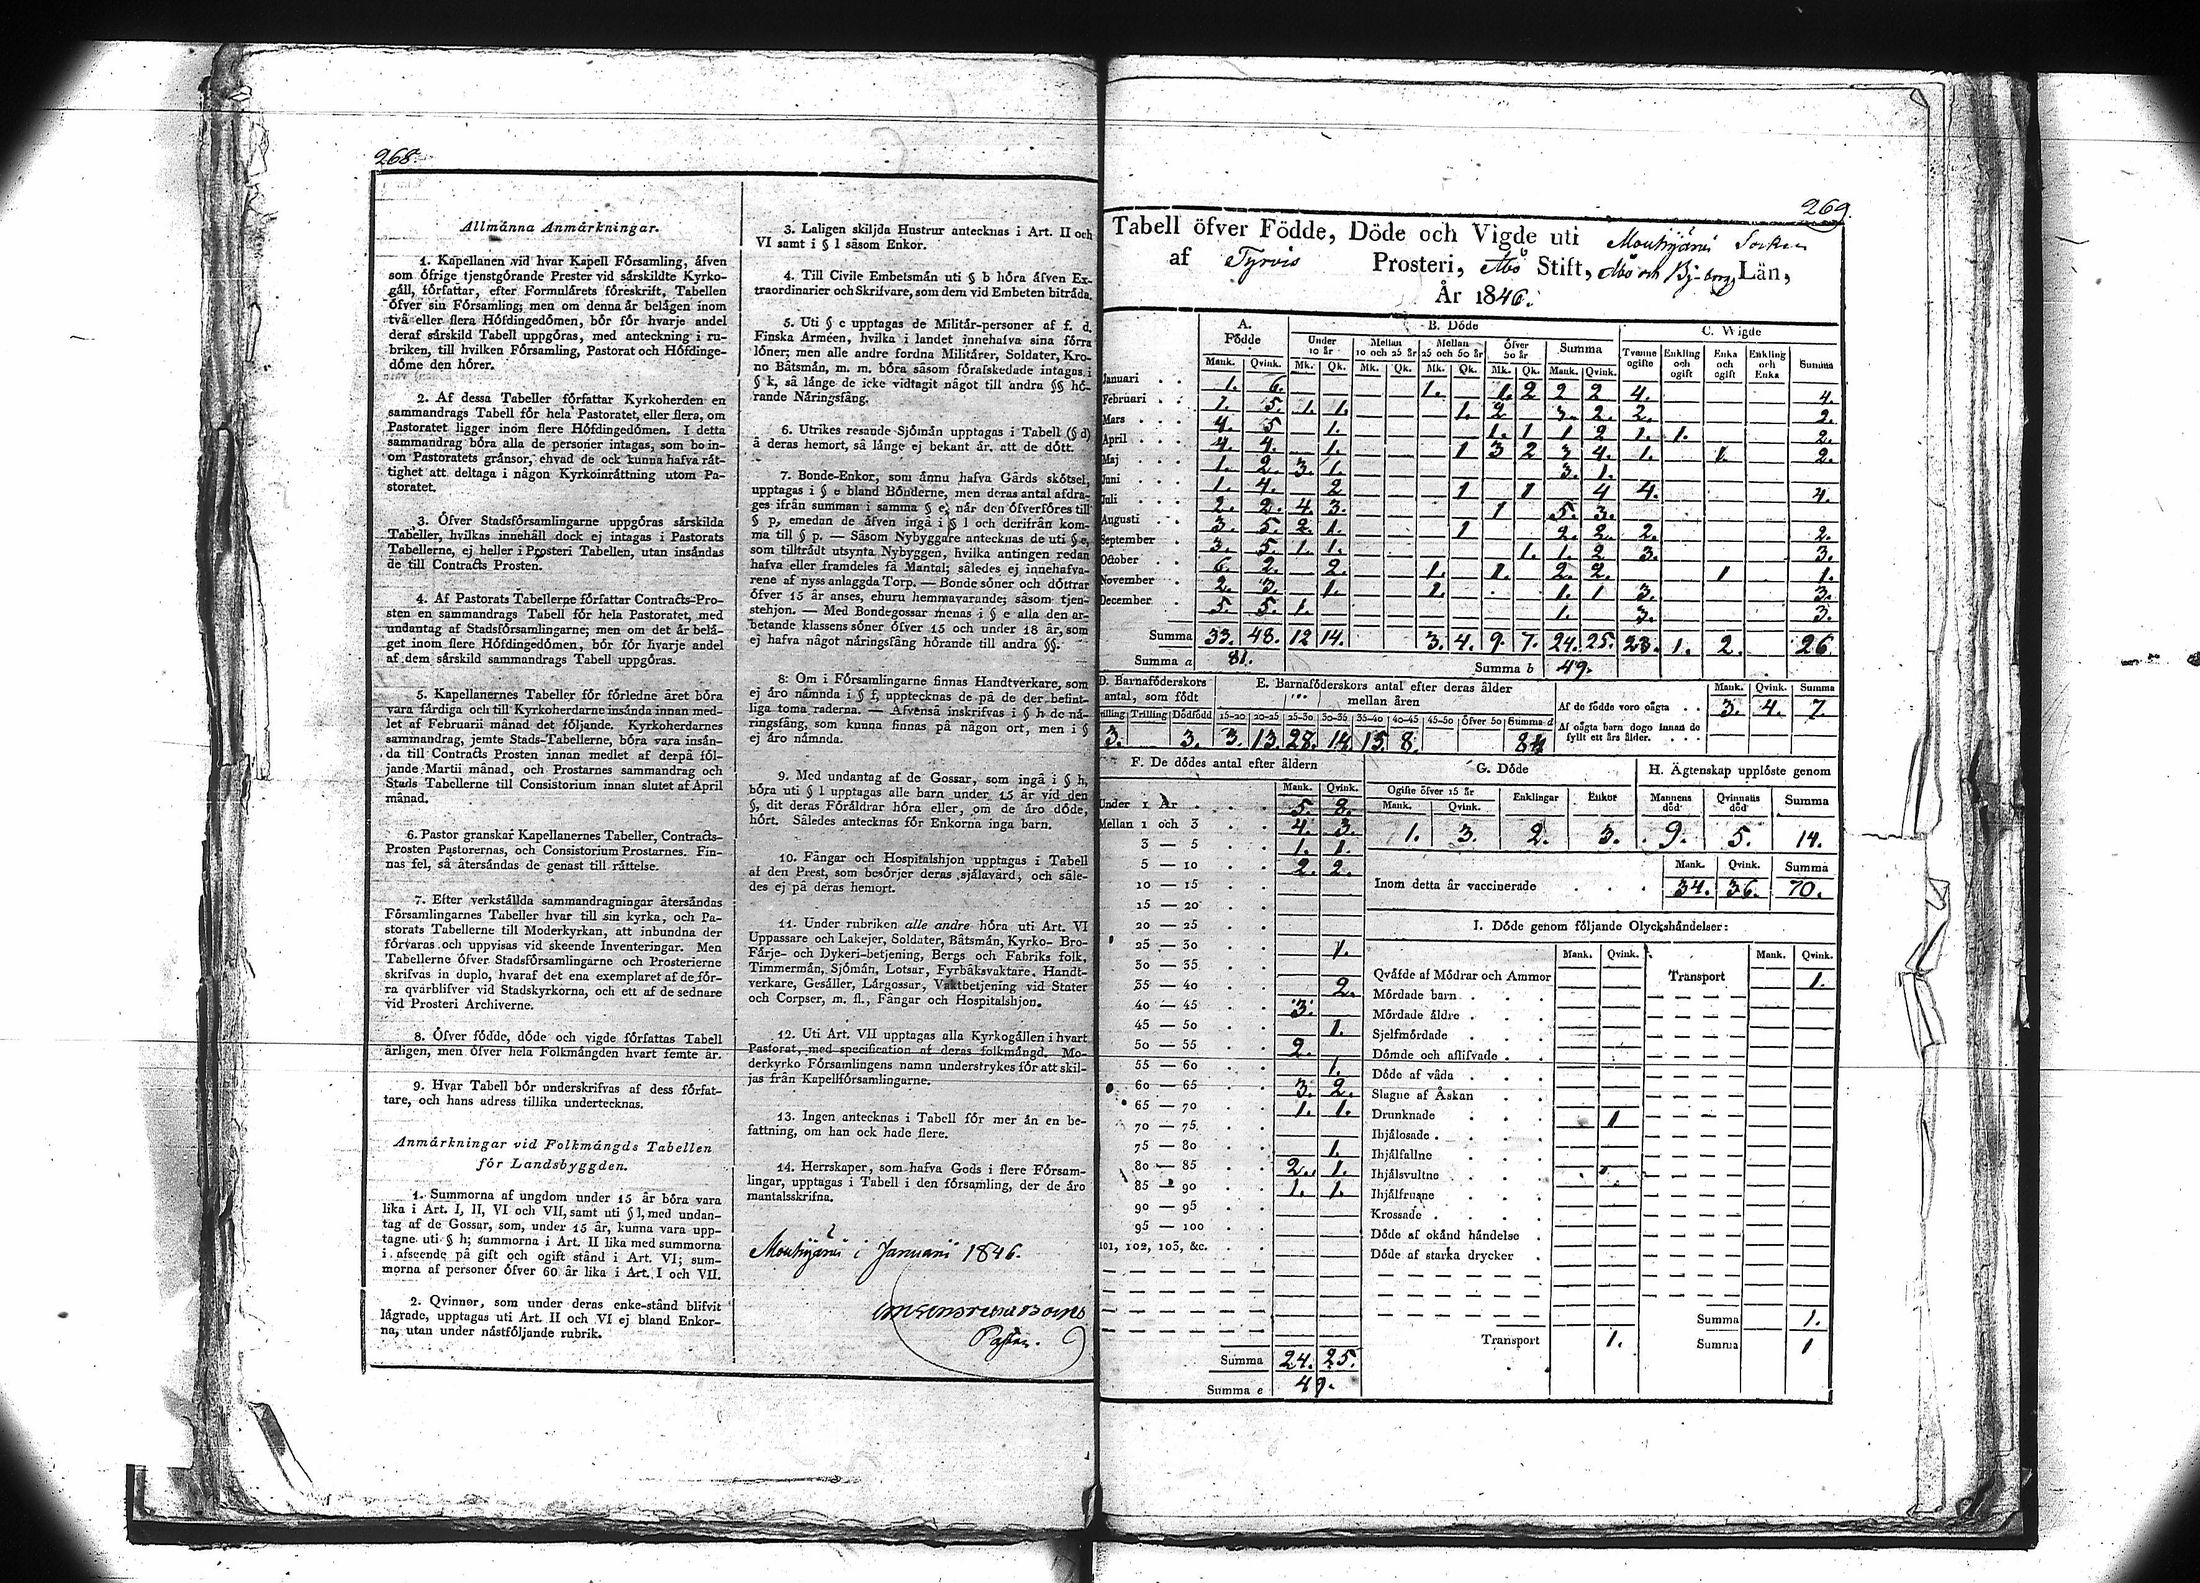 268.
Allmånna Anmårkningar.
1. Kapellanen vid hvar Kapell Fórsamling, åfven
som ófrige tjenstgórande Prester vid sårskildte Kyrko-
gåll, fórfattar, efter Formulårets fóreskrift, Tabellen
ófver sin Fórsamling; men om denna år belågen inom
två eller flera Hófdingedómen, bór fór hvarje andel
deraf sårskild Tabell uppgóras, med anteckning i ru-
briken, till hvilken Fórsamling, Pastorat och Hófdinge-
dóme den hórer.
2. Af dessa Tabeller fórfattar Kyrkoherden en
sammandrags Tabell fór hela Pastoratet, eller flera, om
Pastoratet ligger inom flere Hófdingedómen. I detta
sammandrag bóra alla de personer intagas, som bo in-
om Pastoratets grånsor, ehvad de ock kunna hafva råt-
tighet att deltaga i någon Kyrkoinråttning utom Pa-
storatet.
3. Ófver Stadsfórsamlingarne uppgóras sårskilda
Tabeller, hvilkas innehåll dock ej intages i Pastorats
Tabellerne, ej heller i Prosteri Tabellen, utan insåndas
de till Contracts Prosten.
4. Af Pastorats Tabellerne fórfattar Contracts-Pro-
sten en sammandrags Tabell fór hela Pastoratet, med
undantag af Stadsfórsamlingarne; men om det år belå-
get inom flere Hófdingedómen, bór fór hvarje andel
af dem sårskild sammandrags Tabell uppgóras.
5. Kapellanernes Tabeller fór fórledne året bóra
vara fårdiga och till Kyrkoherdarne insånda innan med-
let af Februarii månad det fóljande. Kyrkoherdarnes
sammandrag, jemte Stads-Tabellerne, bóra vara insån-
da till Contracts Prosten innan medlet af derpå fól-
jande Martii månad, och Prostarnes sammandrag och
Stads Tabellerne till Consistorium innan slutet af April
månad.
6. Pastor granskar Kapellanernes Tabeller, Contracts-
Prosten Pastorernas, och Consistorium Prostarnes. Fin-
nas fel, så återsåndas de genast till råttelse.
7. Efter verkstållda sammandragningar återsåndas
Fórsamlingarnes Tabeller hvar till sin kyrka, och Pa-
storats Tabellerne till Moderkyrkan, att inbundna der
fórvaras och uppvisas vid skeende Inventeringar. Men
Tabellerne ófver Stadsfórsamlingarne och Prosterierne
skrifvas in duplo, hvaraf det ena exemplaret af de fór-
ra qvarblifver vid Stadskyrkorna, och ett af de sednare
vid Prosteri Archiverne.
8. Ófver fódde, dóde och vigde fórfattas Tabell
årligen, men ófver hela Folkmångden hvart femte år.
9. Hvar Tabell bór underskrifvas af dess fórfat-
tare, och hans adress tillika undertecknas.
Anmårkningar vid Folkmångds Tabellen
fór Landsbyggden.
1. Summorna af ungdom under 15 år bóra vara
lika i Art. I, II, VI och VII, samt uti § l, med undan-
tag af de Gossar, som, under 15 år, kunna vara upp-
tagne uti § h; summorna i Art. II lika med summorna
i afseende på gift och ogift stånd i Art. VI; sum-
morna af personer ófver 60 år lika i Art. I och VII.
2. Qvinnor, som under deras enke-stånd blifvit
lågrade, upptagas uti Art. II och VI ej bland Enkor-
na, utan under nåstfóljande rubrik.
3. Laligen skiljda Hustrur antecknas i Art. II och
VI samt i § l såsom Enkor.
4. Till Civile Embetsmån uti § b hóra åfven Ex-
traordinarier och Skrifvare, som dem vid Embeten bitråda.
5. Uti § c upptagas de Militår-personer af f. d.
Finska Arméen, hvilka i landet innehafva sina fórra
lóner; men alle andre fordna Militårer, Soldater, Kro-
no Båtsmån, m. m. bóra såsom fórafskedade intagas i
§ k, så långe de icke vidtagit något till andra §§ hó-
rande Nåringsfång.
6. Utrikes resande Sjómån upptagas i Tabell (§ d)
å deras hemort, så långe ej bekant år, att de dótt.
7. Bonde-Enkor, som ånnu hafva Gårds skótsel,
upptagas i § e bland Bónderne, men deras antal afdra-
ges ifrån summan i samma § e, når den ófverfóres till
§ p, emedan de åfven ingå i § l och derifrån kom-
ma till § p. — Såsom Nybyggare antecknas de uti § e,
som tilltrådt utsynta Nybyggen, hvilka antingen redan
hafva eller framdeles få Mantal; således ej innehafva-
rene af nyss anlaggda Torp. — Bonde sóner och dóttrar
ófver 15 år anses, ehuru hemmavarande; såsom tjen-
stehjon. — Med Bondegossar menas i § e alla den ar-
betande klassens sóner ófver 15 och under 18 år, som
ej hafva något nåringsfång hórande till andra §§.
8. Om i Fórsamlingarne finnas Handtverkare, som
ej åro nåmnda i § f, upptecknas de på de der befint-
liga toma raderna. — Åfvenså inskrifvas i § h de nå-
ringsfång, som kunna finnas på någon ort, men i §
ej åro nåmnda.
9. Med undantag af de Gossar, som ingå i § h,
bóra uti § l upptagas alle barn under 15 år vid den
§, dit deras Fóråldrar hóra eller, om de åro dóde,
hórt. Således antecknas fór Enkorna inga barn.
10. Fångar och Hospitalshjon upptagas i Tabell
af den Prest, som besórjer deras sjålavård, och såle-
des ej på deras hemort.
11. Under rubriken alle andre hóra uti Art. VI
Uppassare och Lakejer, Soldater, Båtsmån, Kyrko- Bro-
Fårje- och Dykeri-betjening, Bergs och Fabriks folk,
Timmermån, Sjómån, Lotsar, Fyrbåksvaktare, Handt-
verkare, Gesåller, Lårgossar, Vaktbetjening vid Stater
och Corpser, m. fl., Fångar och Hospitalshjon.
12. Uti Art. VII upptagas alla Kyrkogållen i hvart
Pastorat, med specification af deras folkmångd. Mo-
derkyrko Fórsamlingens namn understrykes fór att skil-
jas från Kapellfórsamlingarne.
13. Ingen antecknas i Tabell fór mer ån en be-
fattning, om han ock hade flere.
14. Herrskaper, som hafva Gods i flere Fórsam-
lingar, upptagas i Tabell i den fórsamling, der de åro
mantalsskrifna.
Mouhijårvi i Januarii 1846.
Pastor.
269.
Tabell öfver Födde, Döde och Vigde uti Mouhijärvi Socken
af Tyrvis Prosteri, Åbo Stift, Åbo och Bj:borgs Län,
År 1846.
A. Fódde B. Dóde C. Wigde
Under 10 år Mellan 10 och 25 år Mellan 25 och 50 år Ófver 50 år Summa Tvanne ogifte Enkling och ogift Enka och ogift Enkling och Enka Summa
Mank. Qvink. Mk. Qk. Mk. Qk. Mk. Qk. Mk. Qk. Mank. Qvink.
Januari 1. 6. 1. 1. 2 2 2 4. 4.
Februari 1. 5. 1. 1. 1. 2 3. 2. 2. 2.
Mars 4. 5 1. 1. 1 1 2 1. 1. 2.
April 4. 4. 1. 1 3 2 3 4. 1. 1. 2.
Maj 1. 2. 3. 1. 3. 1.
Juni 1. 4. 2 1 1 4 4. 4.
Juli 2. 2. 4. 3. 1 5. 3.
Augusti 3. 5. 2. 1. 1 2. 2. 2. 2.
September 3. 5. 1. 1. 1. 1. 2 3. 3.
October 6. 2. 2. 1. 1. 2. 2. 1 1.
November 2. 3. 1. 1. 1. 1 3. 3.
December 5. 5. 1. 1. 3. 3.
Summa 33. 48. 12 14. 3. 4. 9. 7. 24. 25. 23. 1. 2. 26
Summa a 81. Summa b 49.
D. Barnafóderskors antal, som fódt
Trilling Dódfódd
3. 3.
E. Barnafóderskors antal efter deras ålder mellan åren
15-20 20-25 25-30 30-35 35-40 40-45 45-50 Ófver 50 Summa d
3. 13. 28. 14 15. 8.
Mank. Qvink. Summa
Af de fódde voro oågta 3. 4. 7.
Af oågta barn dogo innan de
fyllt ett års ålder.
F. De dódes antal efter åldern
Mank. Qvink.
Under 1 År 5. 8.
Mellan 1 och 3 4. 3.
3 — 5 1. 1.
5 — 10 2. 2.
10 — 15
15 — 20
20 — 25
25 — 30 1.
30 — 35
35 — 40 2.
40 — 45 3.
45 — 50 1.
50 — 55 2.
55 — 60 1.
60 — 65 3. 2.
65 — 70 1. 1.
70 — 75
75 — 80 1.
80 — 85 2. 1.
85 — 90 1. 1.
90 — 95
95 — 100
101, 102, 103, &c.
Summa 24. 25.
Summa e 49.
G. Dóde
Ogifte ófver 15 år Enklingar Enkor
Mank. Qvink.
1. 3. 2. 3.
H. Ågtenskap upplóste genom
Mannens dód Qvinnans dód Summa
9. 5. 14.
Mank. Qvink. Summa
Inom detta år vaccinerade 34. 36. 70.
I. Dóde genom fóljande Olyckshåndelser:
Mank. Qvink. Mank. Qvink.
Qvåfde af Módrar och Ammor Transport 1.
Mórdade barn
Mórdade åldre
Sjelfmórdade
Dómde och aflifvade
Dóde af våda
Slagne af Åskan
Drunknade 1
Ihjålosade
Ihjålfallne
Ihjålsvultne
Ihjålfrusne
Krossade
Dóde af okånd håndelse
Dóde af starka drycker
Summa 1.
Transport 1. Summa 1